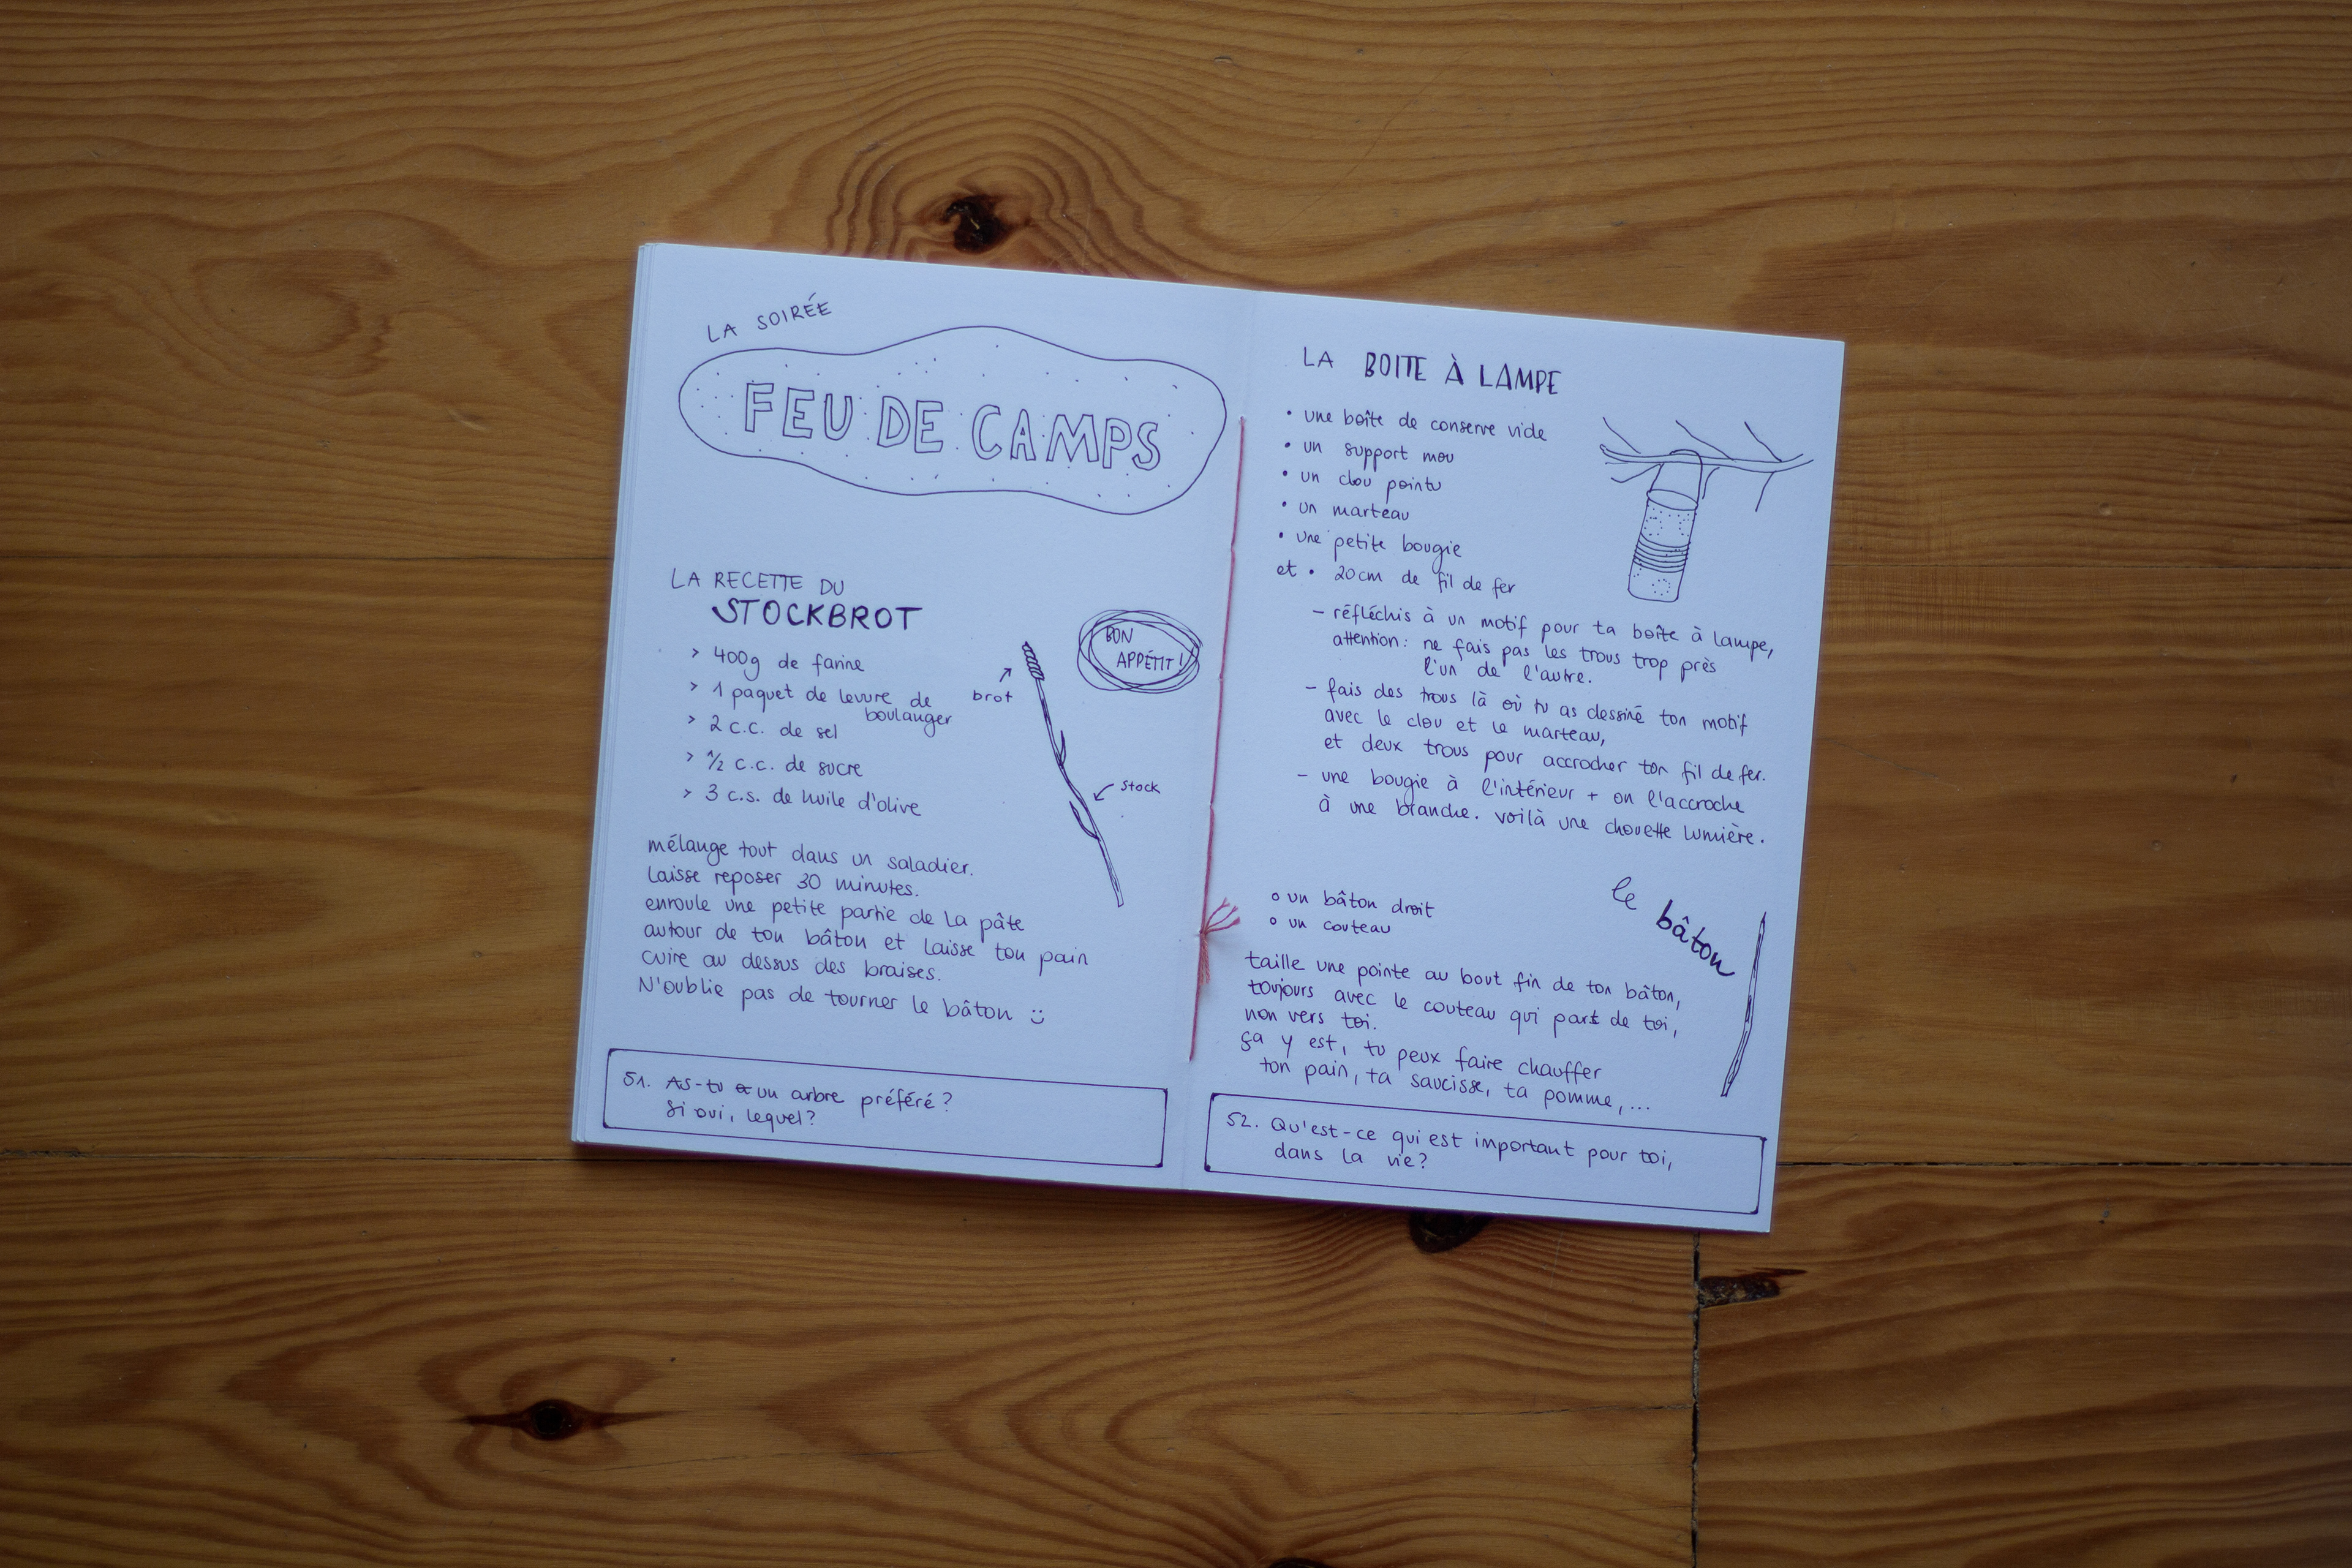 LA SOIRÉE
FEU DE CAMPS
LA RECETTE DU
STOCKBROT
> 400g de farine
> 1 paquet de levure de
boulanger
> 2 c.c. de sel
> 1/2 c.c. de sucre
> 3 c.s. de huile d'olive
BON
APPÉTIT !
brot
stock
mélange tout dans un saladier.
laisse reposer 30 minutes.
enroule une petite partie de la pâte
autour de ton bâton et laisse ton pain
cuire au dessus des braises.
N'oublie pas de tourner le bâton ü
51. As-tu un arbre préféré ?
si oui, lequel ?
LA BOITE À LAMPE
• une boîte de conserve vide
• un support mou
• un clou pointu
• un marteau
• une petite bougie
et • 20cm de fil de fer
– réfléchis à un motif pour ta boîte à lampe,
attention : ne fais pas les trous trop près
l'un de l'autre.
– fais des trous là où tu as dessiné ton motif
avec le clou et le marteau,
et deux trous pour accrocher ton fil de fer.
– une bougie à l'intérieur + on l'accroche
à une branche. voilà une chouette lumière.
le bâton
o un bâton droit
o un couteau
taille une pointe au bout fin de ton bâton,
toujours avec le couteau qui part de toi,
non vers toi.
ça y est, tu peux faire chauffer
ton pain, ta saucisse, ta pomme, ...
52. Qu'est-ce qui est important pour toi,
dans la vie ?